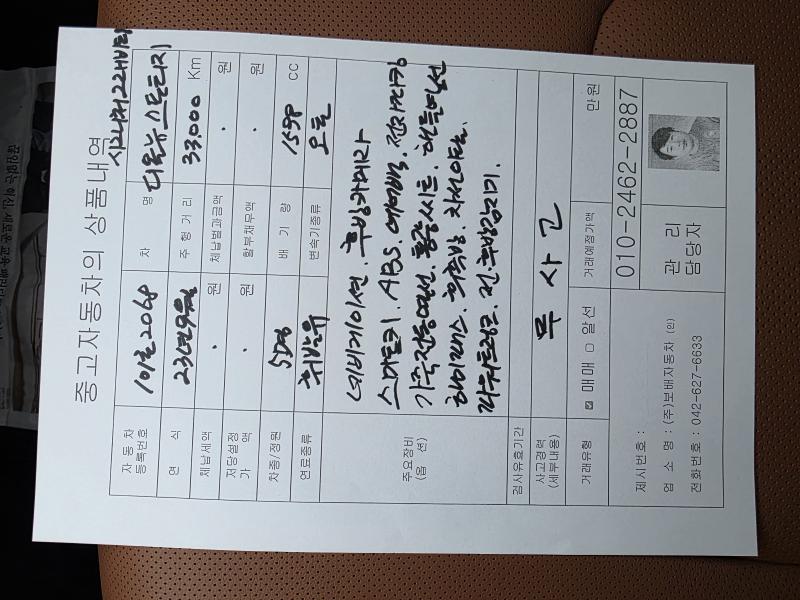 중고자동차의 상품내역
자동차 등록번호 101로2068 차 명 디올뉴스포티지
연 식 23년9월 주 행 거 리 33,000 Km
체납세액 . 원 체납벌과금액 . 원
저당설정 가 액 . 원 할부채무액 . 원
차종/정원 5인승 배 기 량 1598 CC
연료종류 휘발유 변속기종류 오토
주요장비 (옵 션)
네비게이션. 후방카메라
스마트키. ABS. 에어백. 전자파킹
가죽전동열선. 통풍시트. 핸들열선
하이패스. 후측방. 차선이탈.
파워트렁크. 전.후방감지기.
검사유효기간
사고경력 (세부내용) 무 사고
거래유형 ☑ 매매 □ 알선 거래예정가액 만원
제시번호 :
업 소 명 : (주)보배자동차 (인)
전화번호 : 042-627-6633
010-2462-2887
관 리
담당자